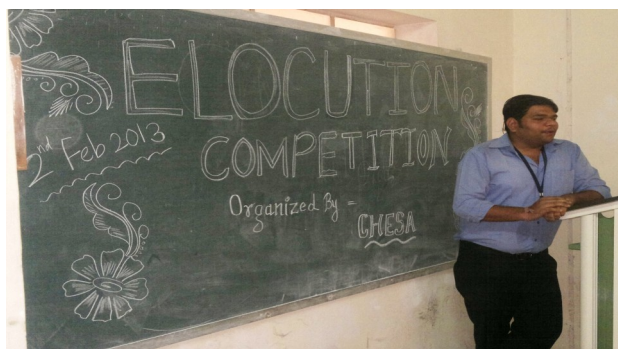 ELOCUTION
COMPETITION
2nd Feb 2013
Organized By -
CHESA